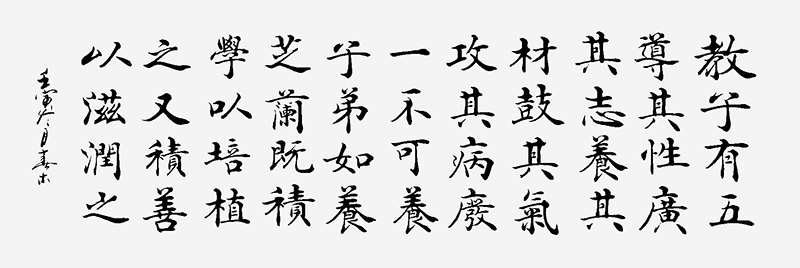 教子有五
導其性廣
其志養其
材鼓其氣
攻其病廢
一不可養
子弟如養
芝蘭既積
學以培植
之又積善
以滋潤之
壬寅冬月